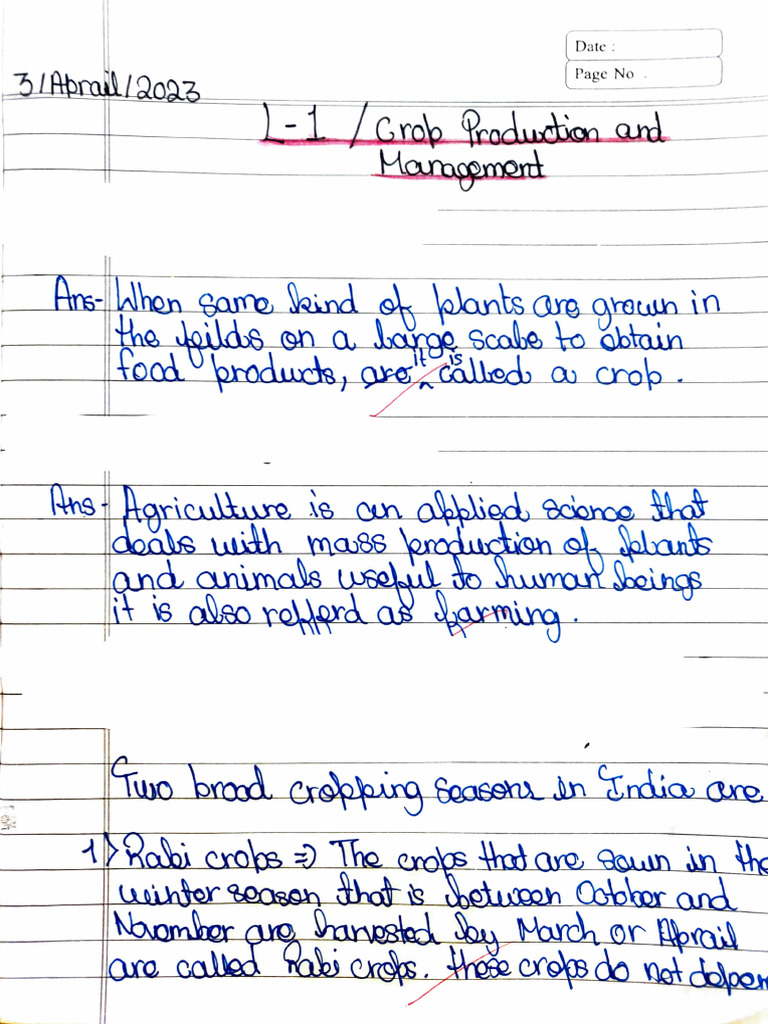 Date :
Page No .
3/Abrail/2023
L-1 / Crop Production and
Management
Ans- When same kind of plants are grown in
the feilds on a large scale to obtain
food products, are it is called a crop.
Ans- Agriculture is an applied science that
deals with mass production of plants
and animals useful to human beings
it is also refferd as farming.
Two broad cropping seasons in India are
1) Rabi crops ⇒ The crops that are sown in the
winter season that is between October and
November are harvested by March or Abrail
are called Rabi crops. these crops do not depen